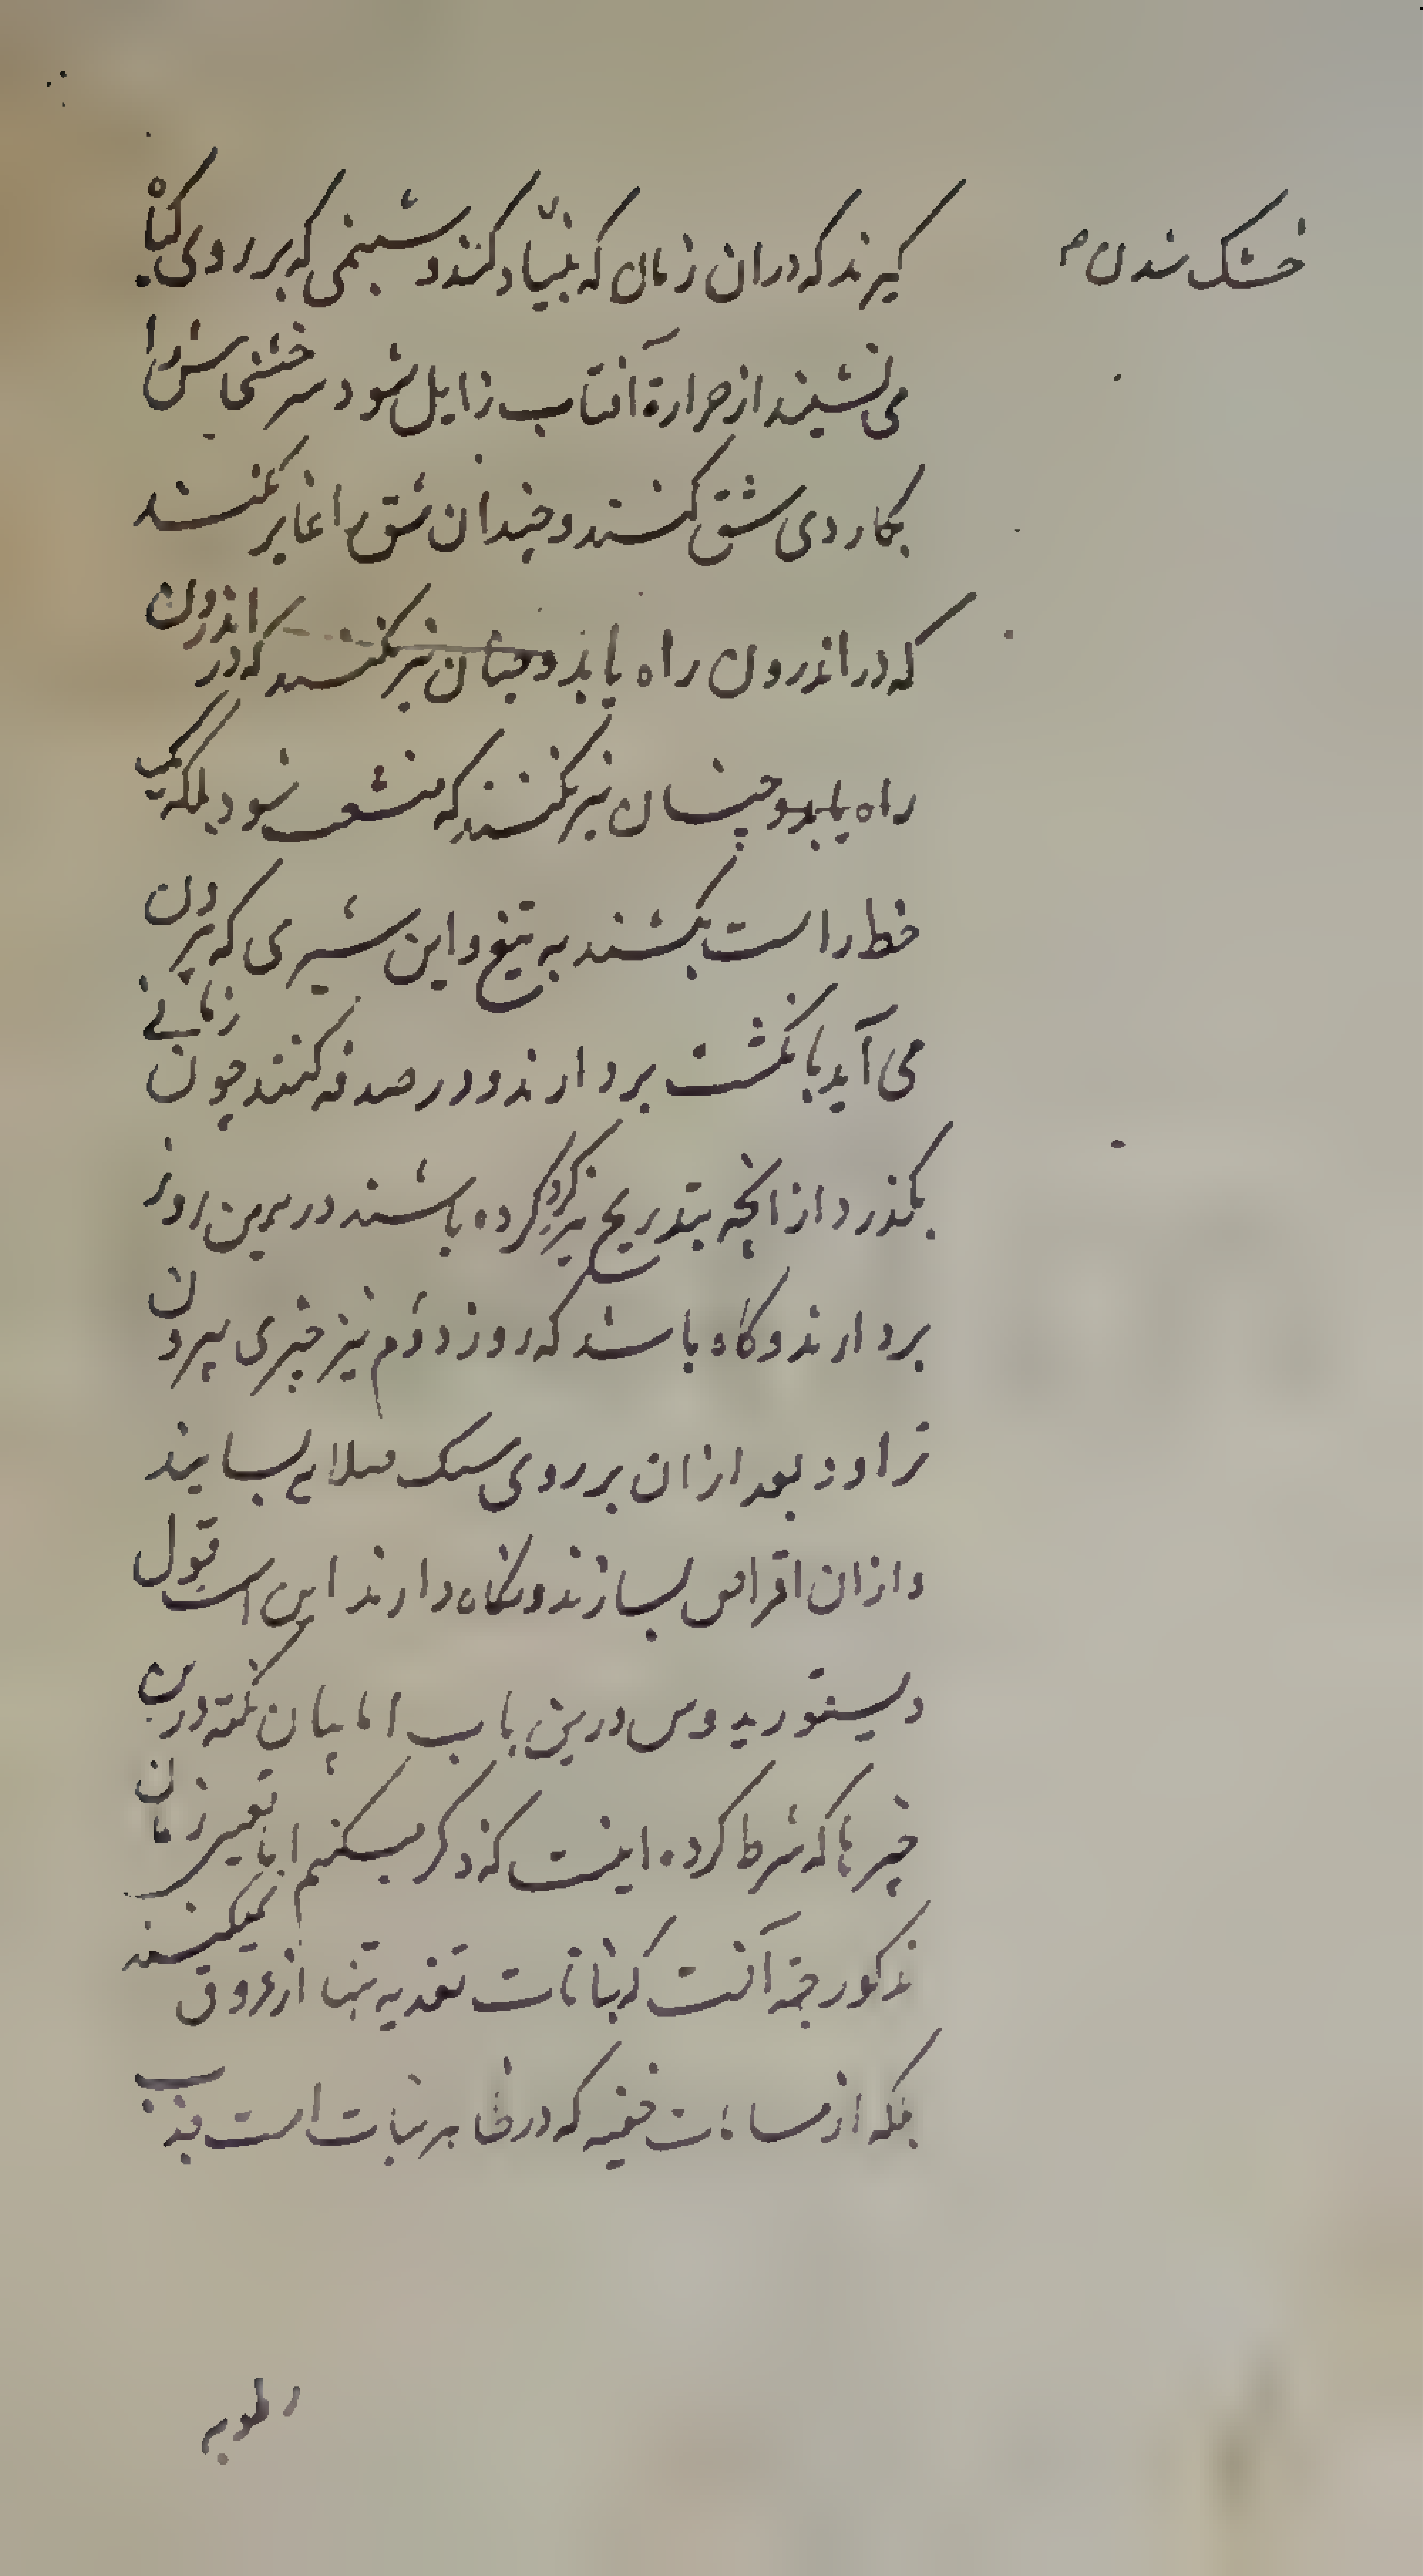 خشک شدن م
گیرند که دران زمان که بنیاد کند و شبنمی که بر روی گیاه
می نشیند از حرارة آفتاب زایل شود سر خشخاش را
بکاردی شق کنند و چندان شق را غایر نکنند
که در اندرون راه یابد و چنان نیز نکنند که در اندرون
راه یابد و چنان نیز نکنند که منشعب شود بلکه یک
خط راست بکشند به تیغ و این شیری که بیرون
می آید بانکشت بردارند و در صدفه کنند چون زمانی
بگذرد از انچه بتدریج نیز گرد کرده باشند درین روز
بردارند و گاه باشد که روز دوم نیز چیزی بیرون
تراود و بعد ازان بر روی سنک صلایه بسایند
و ازان اقراص بسازند و نگاه دارند این است قول
دیسقوریدوس درین باب اما بیان نکته درین
چیزها که شرط کرده اینست که ذکر میکنم اما تعیین زمان
مذکور جهة آنست که نباتات تغذیه تنها از عروق نمیکنند
بلکه از مسامات خفیه که در ظاهر نبات است جذب
رطوبه